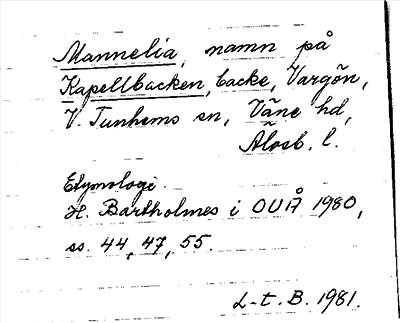 Mannelia, namn på
Kapellbacken, backe, Vargön,
V. Tunhems sn, Väne hd,
Älvsb. l.
Etymologi.
H. Bartholmes i OUÅ 1980,
ss. 44, 47, 55.
L-t. B. 1981.